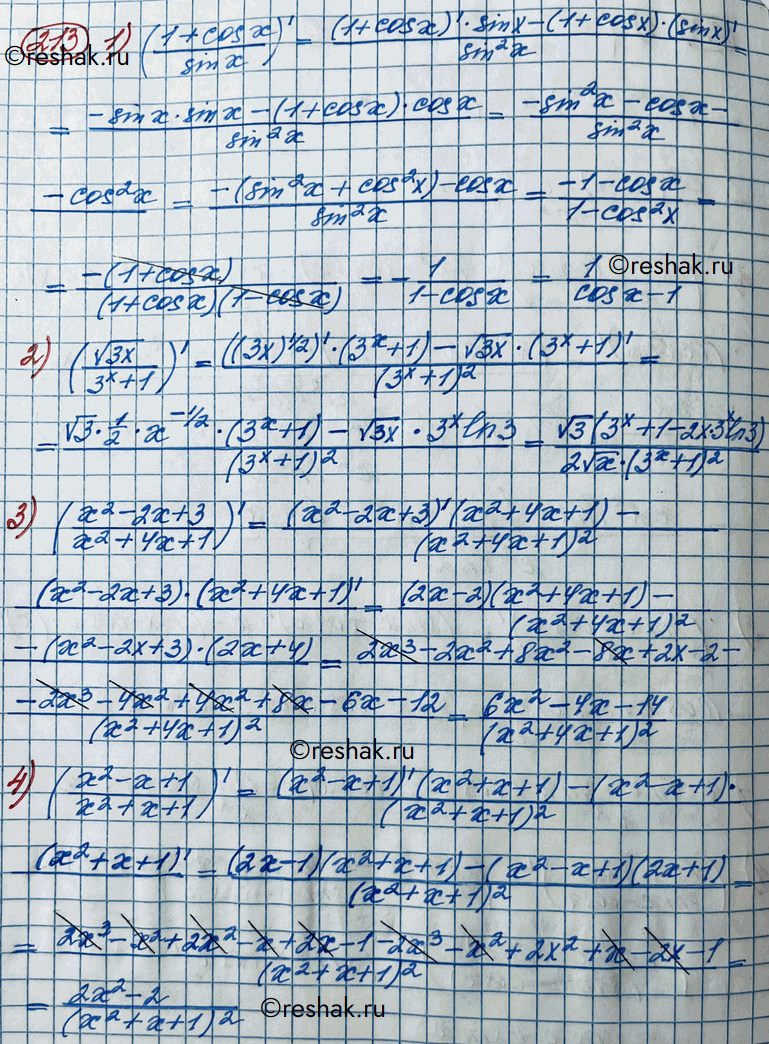 213 1) ((1+cosx)/sinx)' = ((1+cosx)'·sinx-(1+cosx)·(sinx)')/sin²x =
©reshak.ru
= (-sinx·sinx-(1+cosx)·cosx)/sin²x = (-sin²x-cosx-)/sin²x
-cos²x = (-(sin²x+cos²x)-cosx)/sin²x = (-1-cosx)/(1-cos²x) =
©reshak.ru
= -(1+cosx)/((1+cosx)(1-cosx)) = -1/(1-cosx) = 1/(cosx-1)
2) (√3x/(3ˣ+1))' = (((3x)^1/2)'·(3ˣ+1)-√3x·(3ˣ+1)')/(3ˣ+1)² =
= (√3·1/2·x^-1/2·(3ˣ+1)-√3x·3ˣln3)/(3ˣ+1)² = √3(3ˣ+1-2x3ˣln3)/(2√x·(3ˣ+1)²)
3) ((x²-2x+3)/(x²+4x+1))' = ((x²-2x+3)'(x²+4x+1)-)/(x²+4x+1)²
(x²-2x+3)·(x²+4x+1)' = ((2x-2)(x²+4x+1)-)/(x²+4x+1)²
-(x²-2x+3)·(2x+4) = 2x³-2x²+8x²-8x+2x-2-
(-2x³-4x²+4x²+8x-6x-12)/(x²+4x+1)² = (6x²-4x-14)/(x²+4x+1)²
©reshak.ru
4) ((x²-x+1)/(x²+x+1))' = ((x²-x+1)'(x²+x+1)-(x²-x+1)·)/(x²+x+1)²
(x²+x+1)' = ((2x-1)(x²+x+1)-(x²-x+1)(2x+1))/(x²+x+1)² =
= (2x³-x²+2x²-x+2x-1-2x³-x²+2x²+x-2x-1)/(x²+x+1)² =
= (2x²-2)/(x²+x+1)²
©reshak.ru